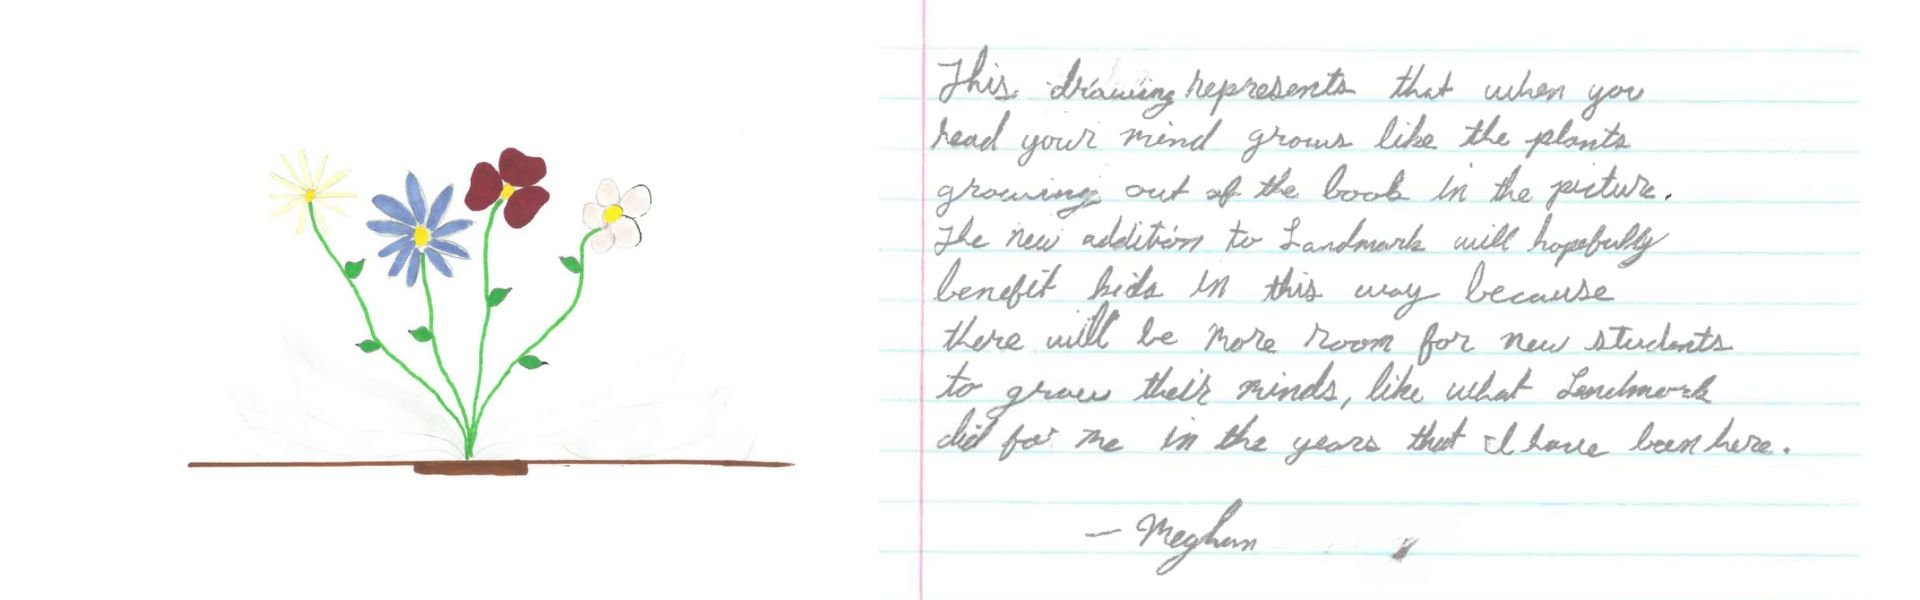 This drawing represents that when you
read your mind grows like the plants
growing out of the book in the picture.
The new addition to Landmark will hopefully
benefit kids in this way because
there will be more room for new students
to grow their minds, like what Landmark
did for me in the years that I have been here.
— Meghan